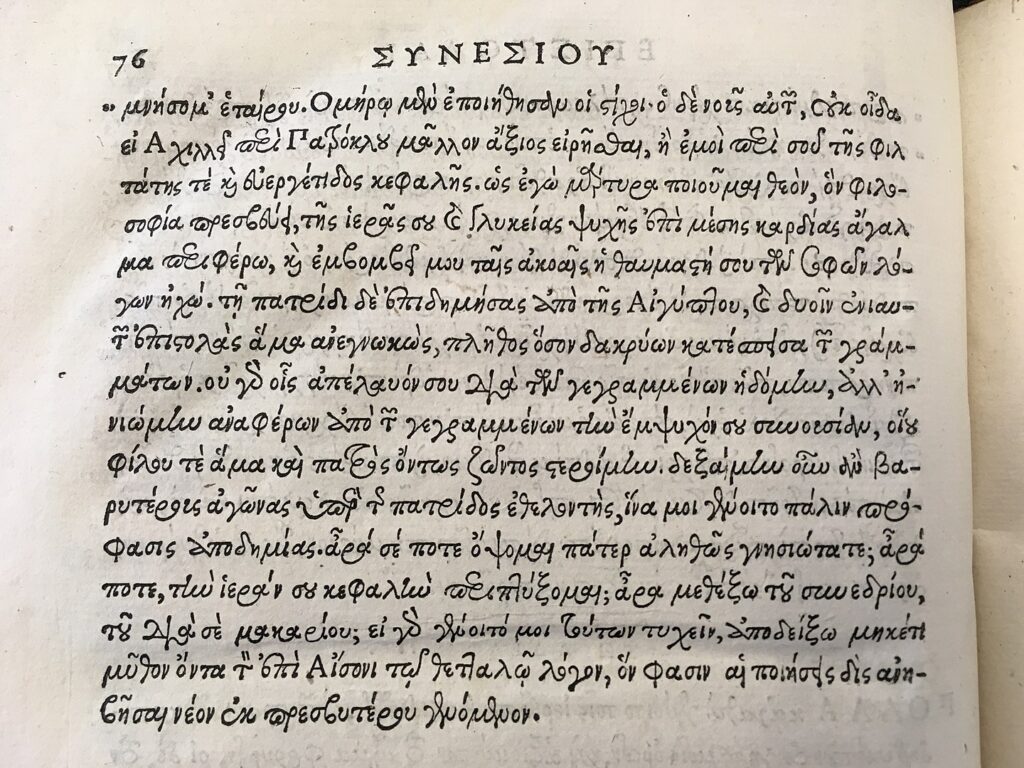 76 ΣΥΝΕΣΙΟΥ
" μνήσομ' ἑταίρου. Ομήρῳ μὲν ἐποιήθησαν οἱ στίχοι· ὁ δὲ νοῦς αὐτῶν, οὐκ οἶδα
εἰ Αχιλλεῖ περὶ Πατρόκλου μᾶλλον ἄξιος εἰρῆσθαι, ἢ ἐμοὶ περὶ σοῦ τῆς φιλ
τάτης τὲ καὶ εὐεργέτιδος κεφαλῆς. ὡς ἐγὼ μάρτυρα ποιοῦμαι θεὸν, ὃν φιλο-
σοφία πρεσβεύει, τῆς ἱερᾶς σου καὶ γλυκείας ψυχῆς ἐπὶ μέσης καρδίας ἄγαλ
μα περιφέρω, καὶ ἐμβομβεῖ μου ταῖς ἀκοαῖς ἡ θαυμαστή σου τῶν σοφῶν λό-
γων ἠχώ. τῇ πατρίδι δὲ ἐπιδημήσας ἀπὸ τῆς Αἰγύπτου, καὶ δυοῖν ἐνιαυ-
τῶν ἐπιστολὰς ἅμα ἀνεγνωκὼς, πλῆθος ὅσον δακρύων κατέσπεισα τῶν γραμ-
μάτων. οὐ γὰρ οἷς ἀπέλαυόν σου διὰ τῶν γεγραμμένων ἡδόμην, ἀλλ' ἠ-
νιώμην ἀναφέρων ἀπὸ τῶν γεγραμμένων τὴν ἔμψυχόν σου συνουσίαν, οἵου
φίλου τὲ ἅμα καὶ πατρὸς ὄντως ζῶντος ἐστεροίμην. δεξαίμην οὖν ἂν βα-
ρυτέρους ἀγῶνας ὑπὲρ τῆς πατρίδος ἐθελοντὴς, ἵνα μοι γένοιτο πάλιν πρό-
φασις ἀποδημίας. ἆρά σέ ποτε ὄψομαι πάτερ ἀληθῶς γνησιώτατε; ἆρά
ποτε, τὴν ἱεράν σου κεφαλὴν περιπτύξομαι; ἆρα μεθέξω τοῦ συνεδρίου,
τοῦ διὰ σὲ μακαρίου; εἰ γὰρ γένοιτό μοι τούτων τυχεῖν, ἀποδείξω μηκέτι
μῦθον ὄντα τὸν ἐπὶ Αἴσονι τῷ θετταλῷ λόγον, ὅν φασιν αἱ ποιήσεις δὶς ἀνη-
βῆσαι νέον ἐκ πρεσβυτέρου γενόμενον.